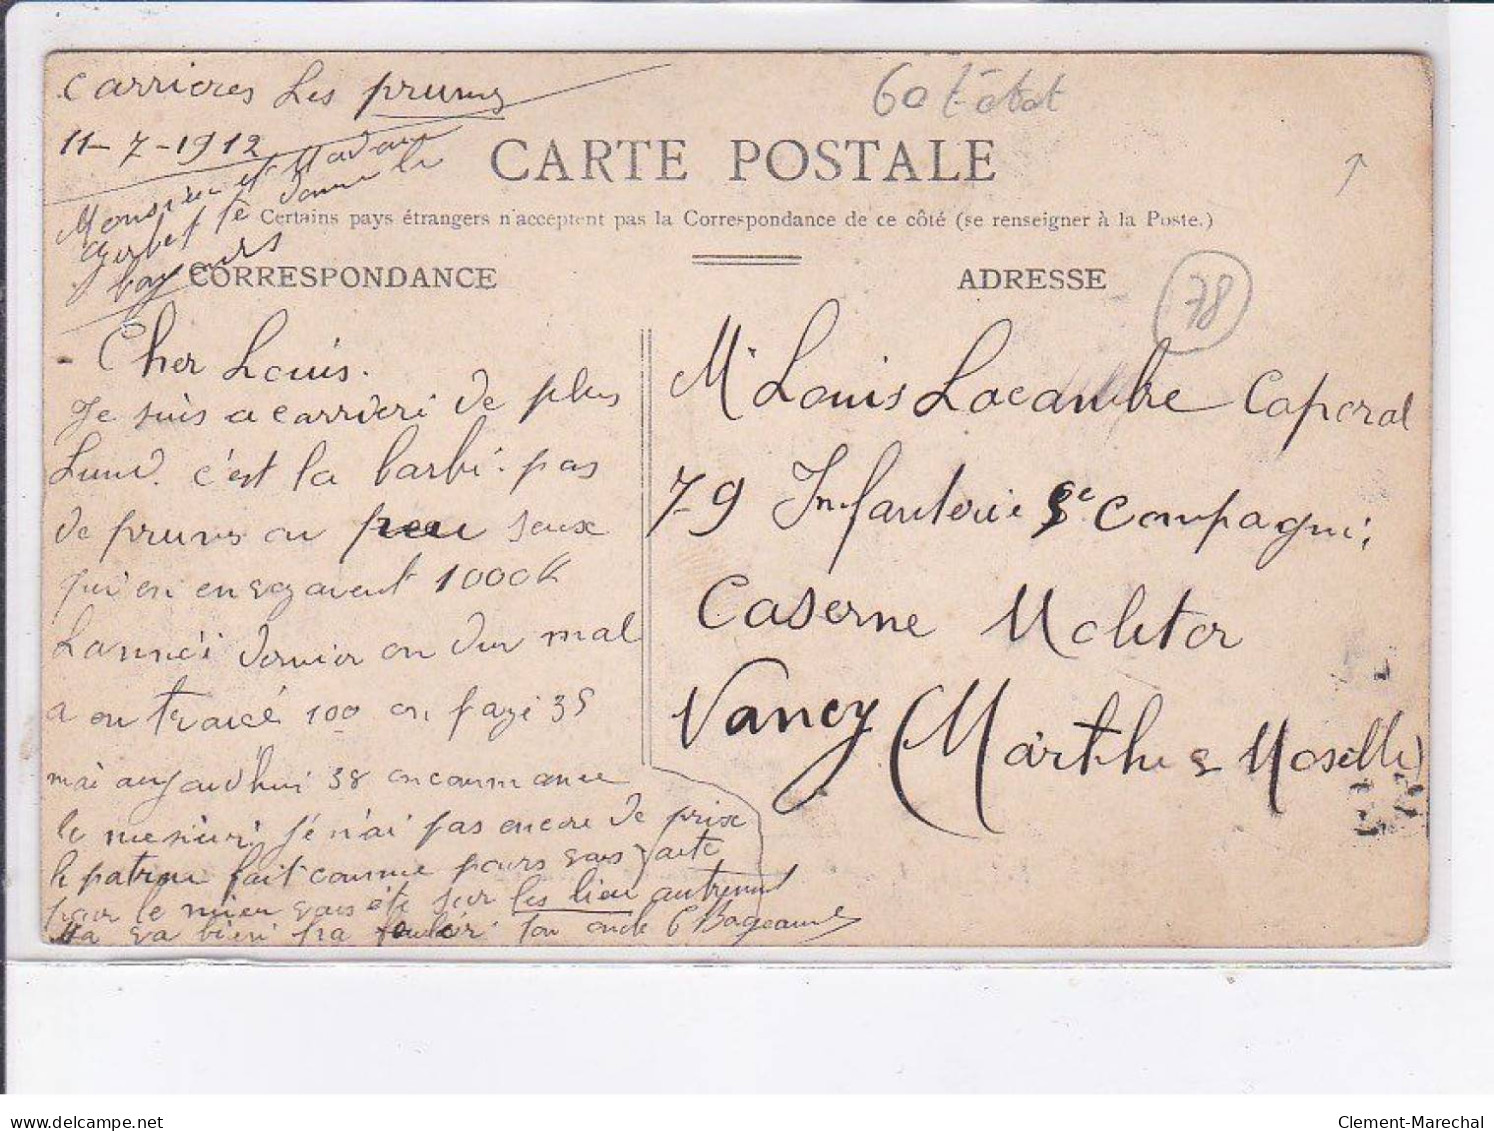 Carrieres Les prunes
60 t-état
11-7-1912
Monsieur et Madame
Gerbet te donne le
bonjours
CARTE POSTALE
Certains pays étrangers n'acceptent pas la Correspondance de ce côté (se renseigner à la Poste.)
CORRESPONDANCE
ADRESSE
78
Cher Louis.
Je suis a carrieri de plus
Lund. c'est la barbi. pas
de prunes on peu seux
qui en engavent 1000K
Lannéi dernier on dur mal
a on traicé 100 on payi 35
mai aujourd'hui 38 on commance
le mesiuri je n'ai pas encore de prix
le patron fait comme pours vous faite
pour le mieu vous éte sur les lieu autrement
sa va bien pa ton oncle C Bageaud
Mr Louis Lacambre Caporal
79 Infanterie 8e Compagnie
Caserne Molitor
Nancy (Marthe & Moselle)
Clement-Marechal
www.delcampe.net